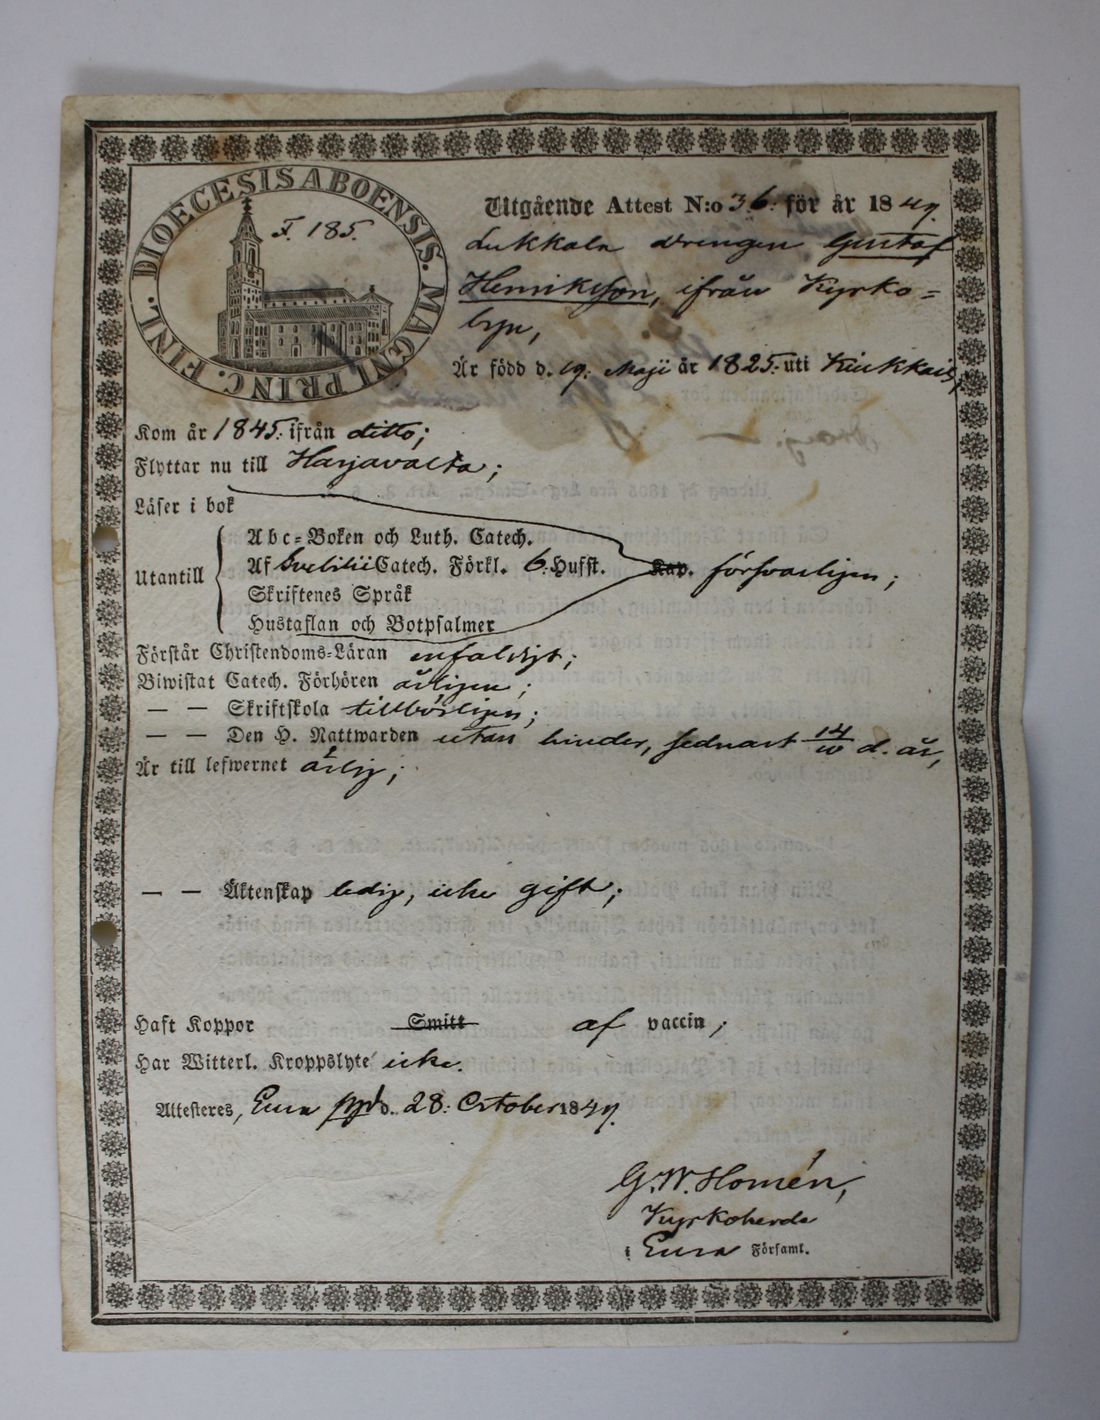 DIOECESIS ABOENSIS. MAGNI PRINC. FINL.
F. 185.
Utgående Attest N:o 36. för år 1849.
Lukkala drengen Gustaf
Henriksson, ifrån Kyrko=
byn,
Är född d. 19. Maji år 1825. uti Kiukkais,
Kom år 1845. ifrån ditto;
Flyttar nu till Harjavalta;
Läser i bok
Abc=Boken och Luth. Catech.
Utantill Af Svebilii Catech. Förkl. 6. Hufst. Kap. försvarligen;
Skriftenes Språk
Hustaflan och Botpsalmer
Förstår Christendoms=Läran enfaldigt;
Biwistat Catech. Förhören årligen;
— — Skriftskola tillbörligen;
— — Den H. Nattwarden utan hinder, sednast 14/10 d. år,
Är till lefwernet ärlig;
— — Äktenskap ledig, icke gift;
Haft Koppor Smitt af vaccin;
Har Witterl. Kroppslyte icke.
Attesteres, Eura d. 28: October 1849.
G. W. Homén,
Kyrkoherde
i Eura Församl.